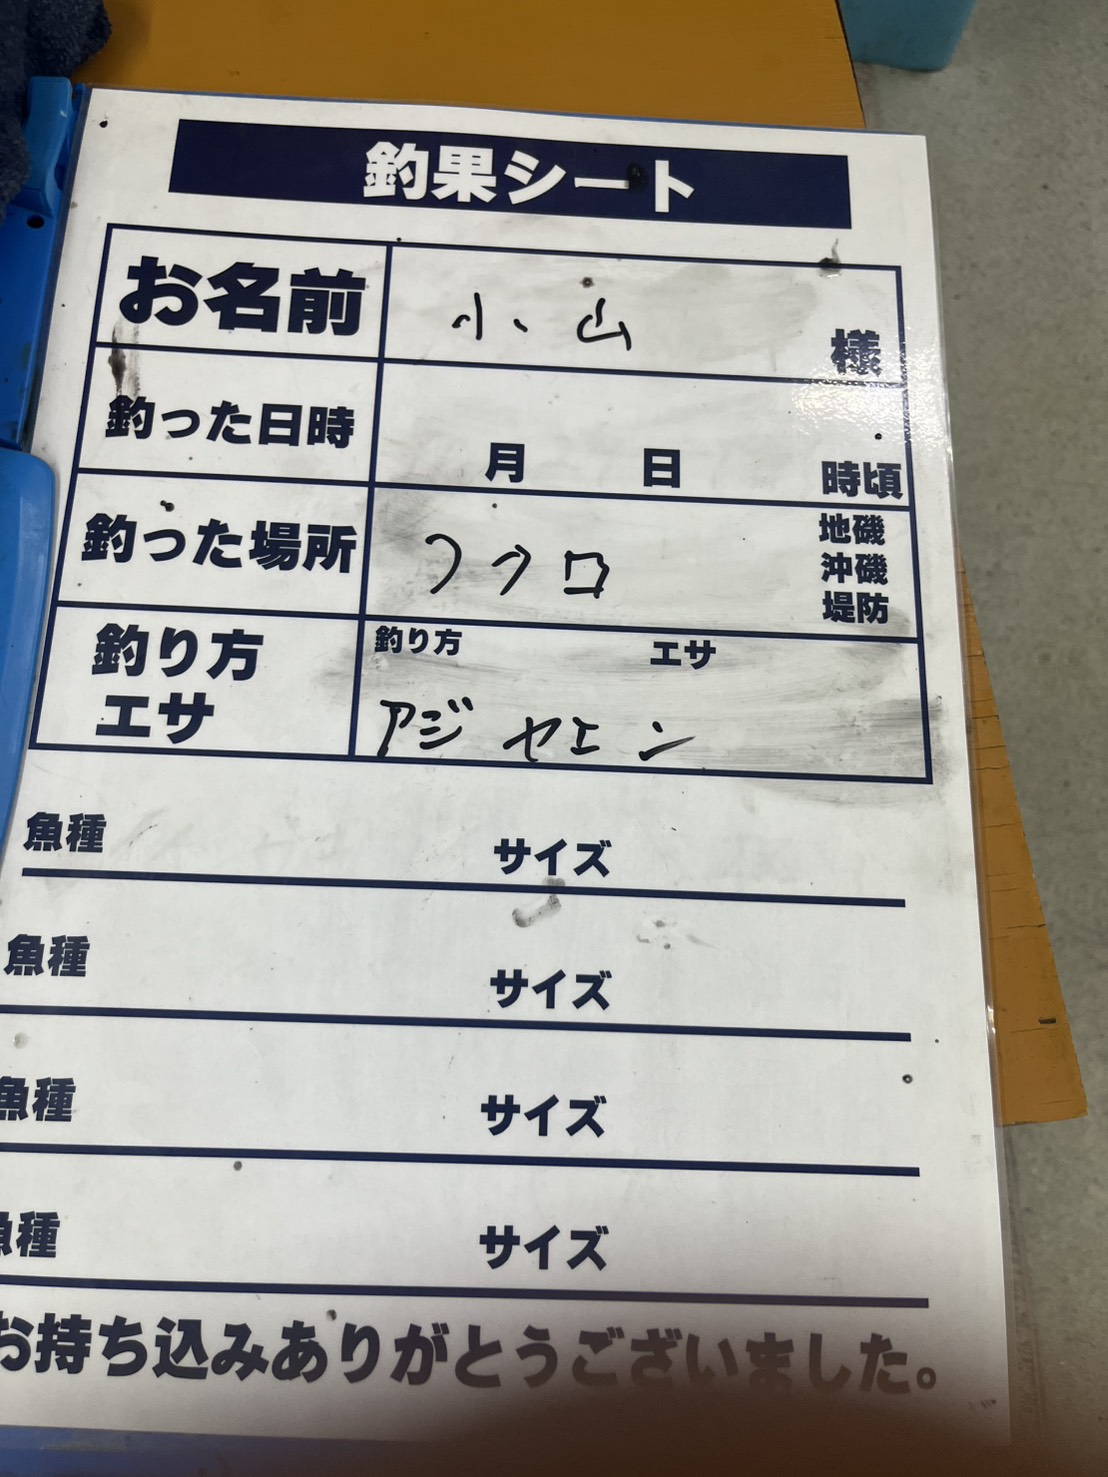 釣果シート
お名前 小山 様
釣った日時 月 日 時頃
釣った場所 フクロ 地磯
沖磯
堤防
釣り方
エサ
釣り方 エサ
アジ ヤエン
魚種 サイズ
魚種 サイズ
魚種 サイズ
魚種 サイズ
お持ち込みありがとうございました。